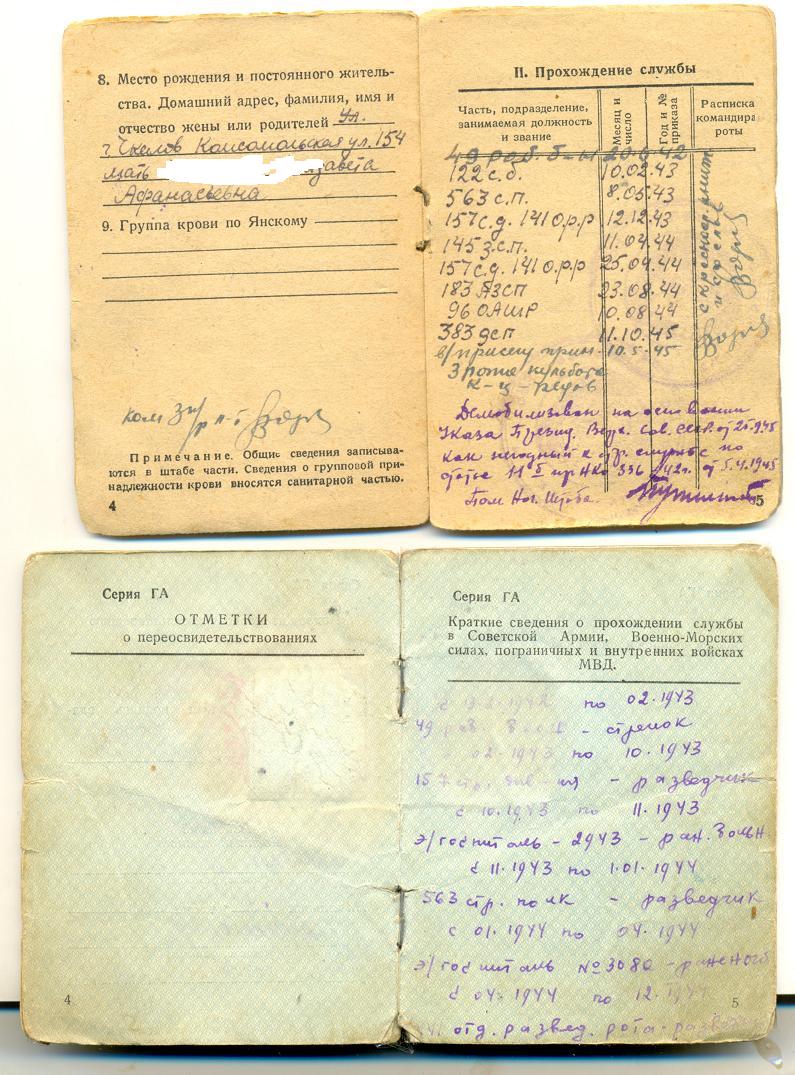 8. Место рождения и постоянного житель-
ства. Домашний адрес, фамилия, имя и
отчество жены или родителей
г. Чкалов Комсомольская ул. 154
мать
Афанасьевна
9. Группа крови по Янскому
Примечание. Общие сведения записыва-
ются в штабе части. Сведения о групповой при-
надлежности крови вносятся санитарной частью.
4
II. Прохождение службы
Часть, подразделение, занимаемая должность и звание
Месяц и число
Год и № приказа
Расписка командира роты
49 раб. б-н 42
122 с.б. 10.02.43
563 с.п. 8.05.43
157 с.д. 141 О.р.р 12.12.43
145 з.с.п. 11.04.44
157 с.д. 141 О.р.р 25.04.44
183 АЗСП 23.08.44
96 ОАШР 10.08.44
383 дсп 11.10.45
в/присягу прин. 10.5.45
Демобилизован на основании
Указа Презид. Верх. Сов. СССР от
как негодный к стр. службе по
от 5.4.1945
Пом Нач. Штаба
5
Серия ГА
ОТМЕТКИ
о переосвидетельствованиях
4
Серия ГА
Краткие сведения о прохождении службы
в Советской Армии, Военно-Морских
силах, пограничных и внутренних войсках
МВД.
1942 по 02.1943
49 раб. - стрелок
02.1943 по 10.1943
157 стр. - разведчик
с 10.1943 по 11.1943
э/госпиталь - 2943 - ран. больн.
с 11.1943 по 1.01.1944
563 стр. полк - разведчик
с 01.1944 по 04.1944
э/госпиталь № 3080 - раненый
с 04.1944 по 12.1944
отд. развед. рота -
5